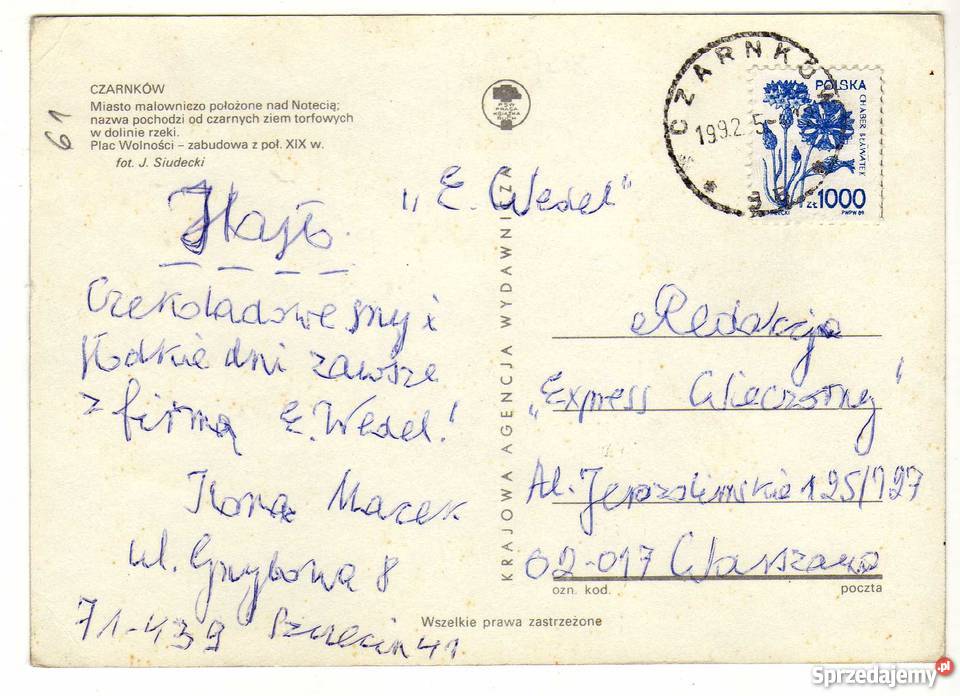 CZARNKÓW
Miasto malowniczo położone nad Notecią;
nazwa pochodzi od czarnych ziem torfowych
w dolinie rzeki.
Plac Wolności – zabudowa z poł. XIX w.
fot. J. Siudecki
61
Hasło
„E. Wedel"
Czekoladowe sny i
słodkie dni zawsze
z firmą E. Wedel!
Ilona Macek
ul. Grzybowa 8
71-439 Szczecin 41
KRAJOWA AGENCJA WYDAWNICZA
PSW
PRASA
KSIĄŻKA
RUCH
CZARNKÓW
1992
POLSKA
CHABER BŁAWATEK
ZŁ 1000
PWPW 89
Redakcja
„Express Wieczorny"
Al. Jerozolimskie 125/127
02-017 Warszawa
ozn. kod.
poczta
Wszelkie prawa zastrzeżone
Sprzedajemy.pl